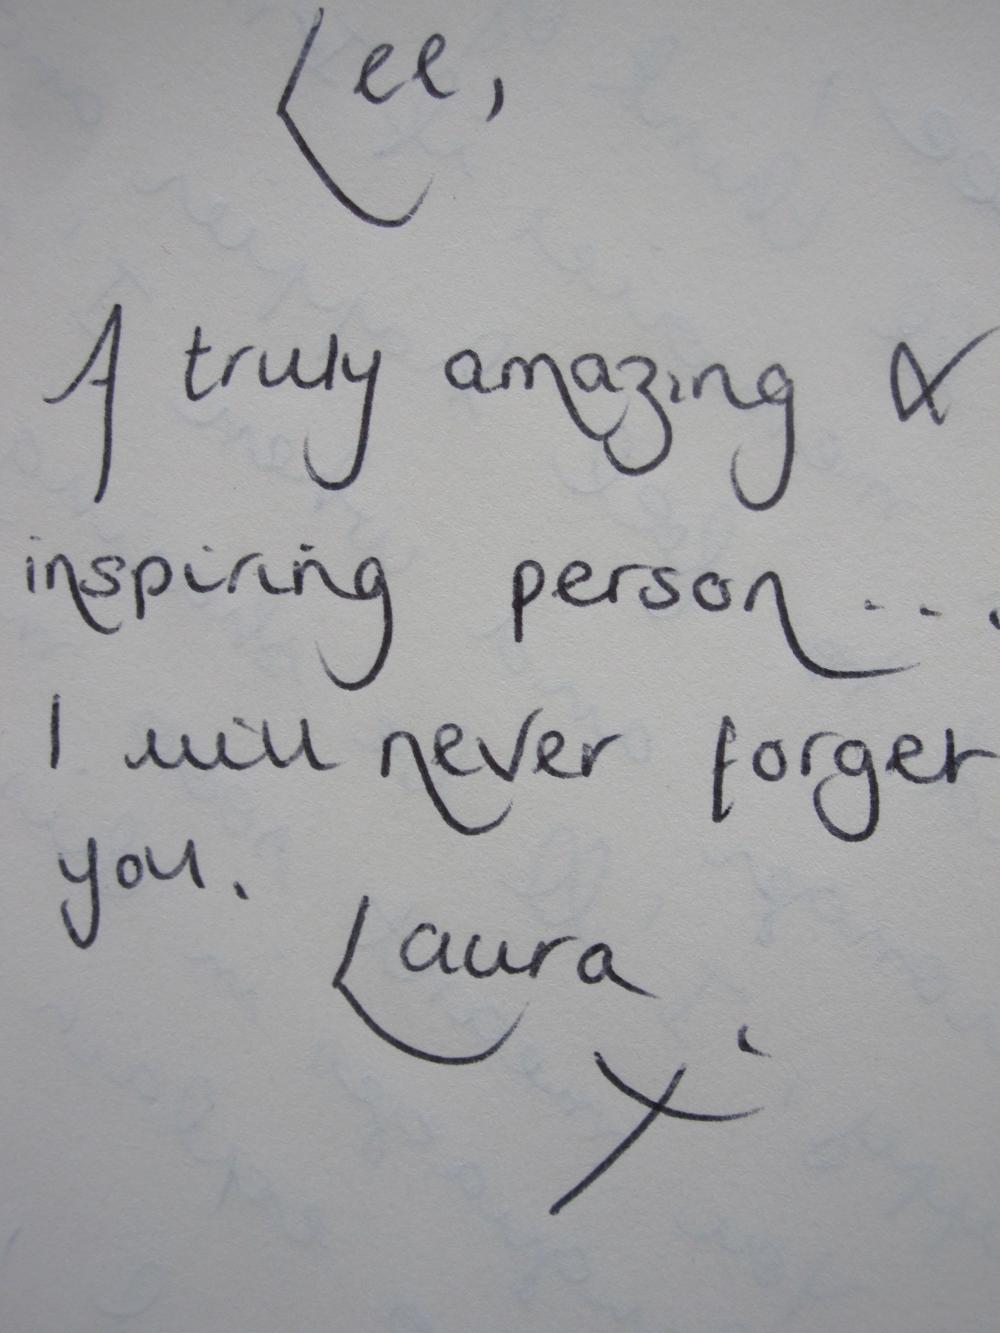 Lee,
A truly amazing &
inspiring person...
I will never forget
you.
Laura
X